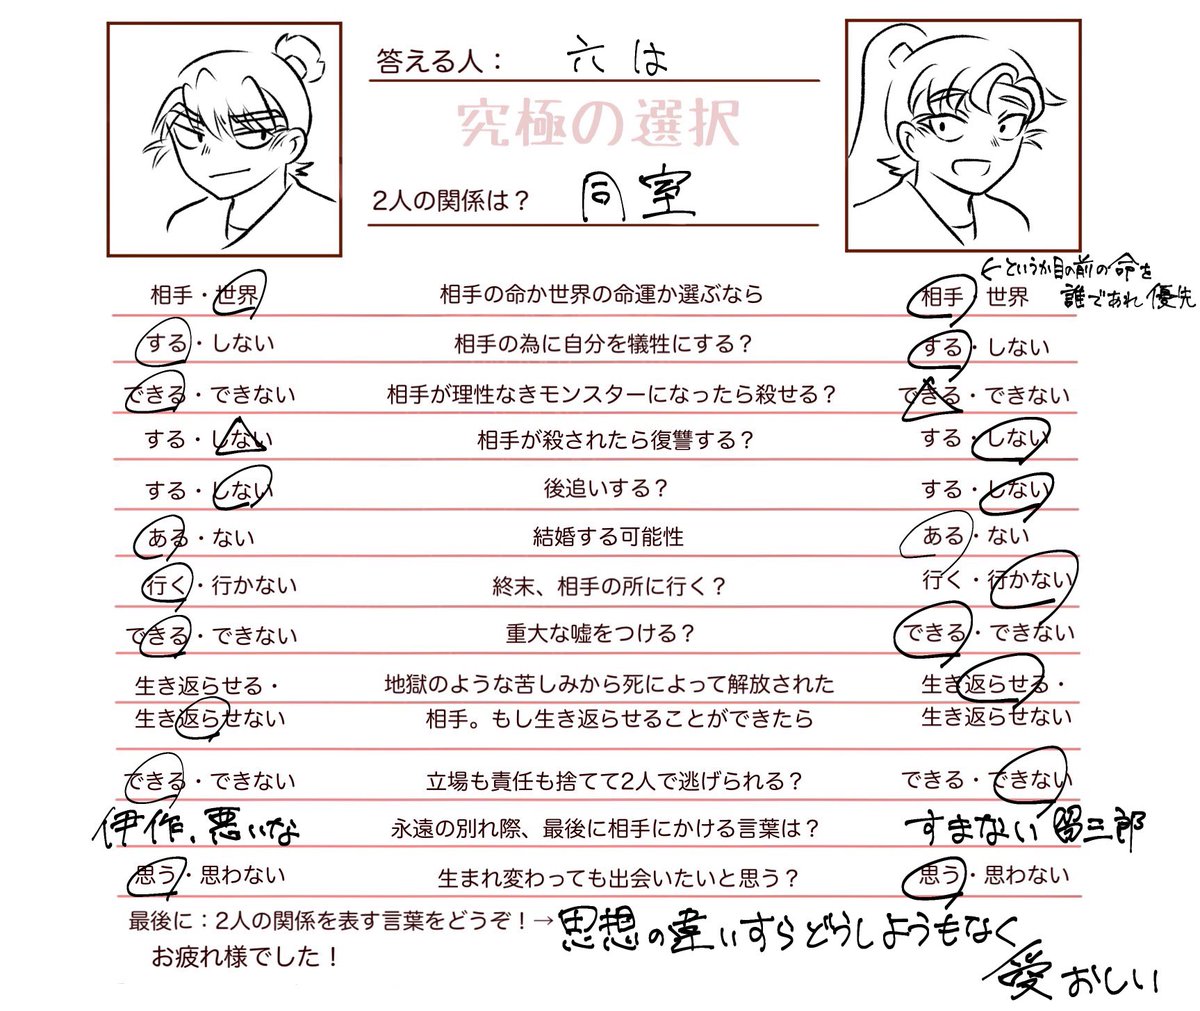 答える人： 六は
究極の選択
2人の関係は？ 同室
←というか目の前の命を
誰であれ優先
相手・世界 相手の命か世界の命運か選ぶなら 相手・世界
する・しない 相手の為に自分を犠牲にする？ する・しない
できる・できない 相手が理性なきモンスターになったら殺せる？ できる・できない
する・しない 相手が殺されたら復讐する？ する・しない
する・しない 後追いする？ する・しない
ある・ない 結婚する可能性 ある・ない
行く・行かない 終末、相手の所に行く？ 行く・行かない
できる・できない 重大な嘘をつける？ できる・できない
生き返らせる・ 地獄のような苦しみから死によって解放された 生き返らせる・
生き返らせない 相手。もし生き返らせることができたら 生き返らせない
できる・できない 立場も責任も捨てて2人で逃げられる？ できる・できない
伊作、悪いな 永遠の別れ際、最後に相手にかける言葉は？ すまない留三郎
思う・思わない 生まれ変わっても出会いたいと思う？ 思う・思わない
最後に：2人の関係を表す言葉をどうぞ！→ 思想の違いすらどうしようもなく
愛おしい
お疲れ様でした！